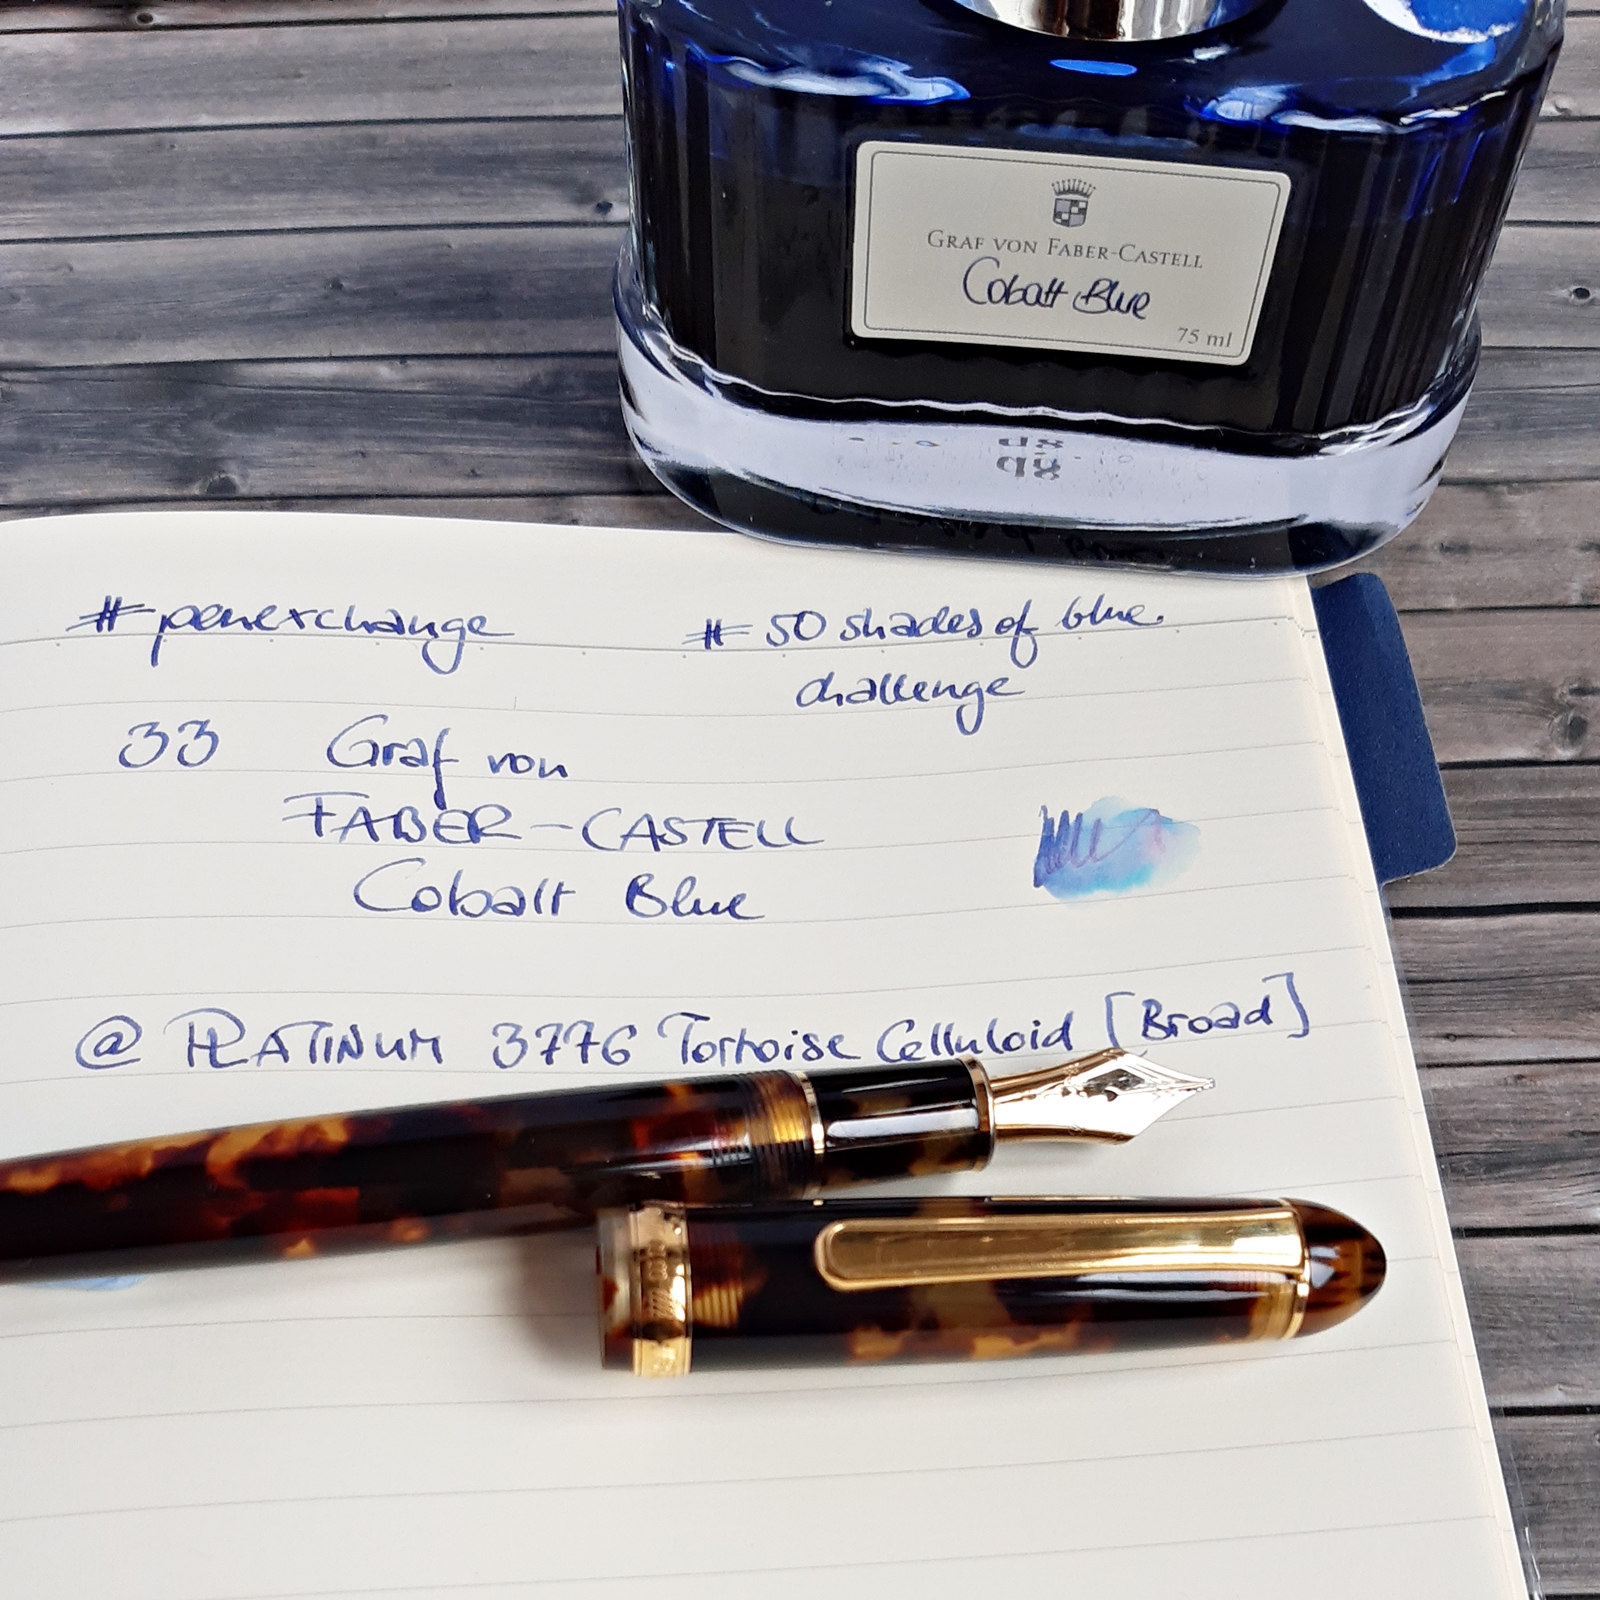 GRAF VON FABER-CASTELL
Cobalt Blue
75 ml
#penexchange
# 50 shades of blue.
challenge
33 Graf von
FABER-CASTELL
Cobalt Blue
@ PLATINUM 3776 Tortoise Celluloid [Broad]